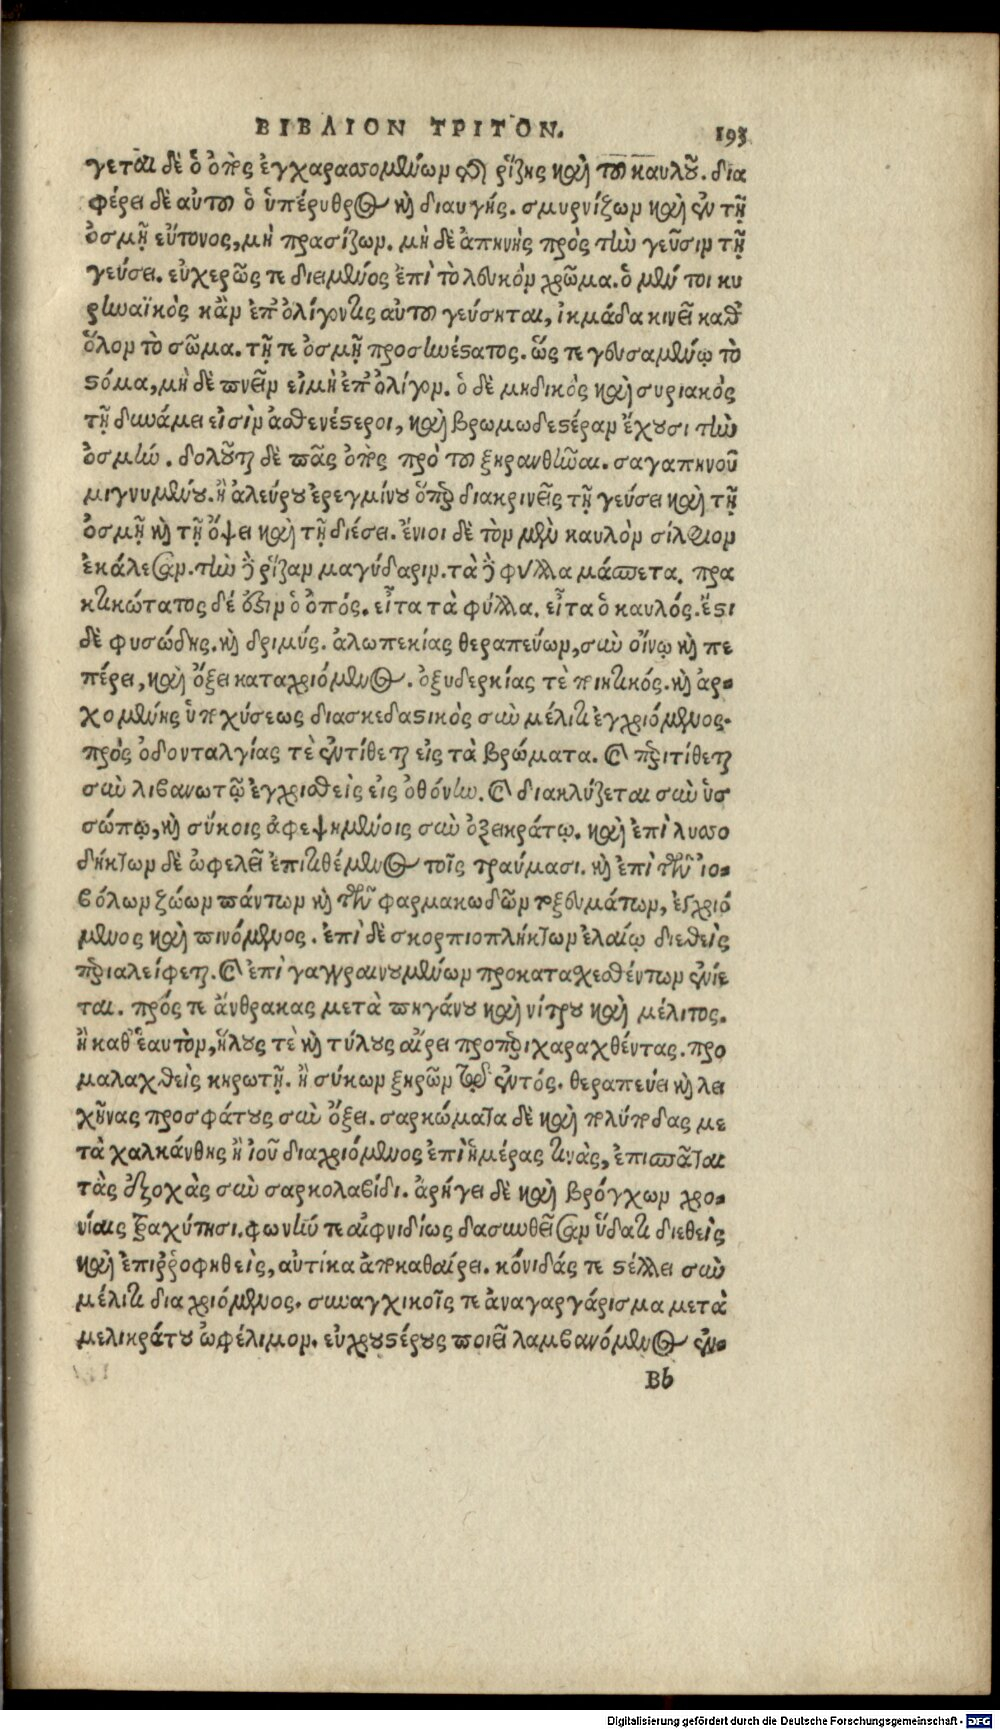 ΒΙΒΛΙΟΝ ΤΡΙΤΟΝ. 193
γεται δὲ ὁ ὀπὸς ἐγχαρασσομένων τῆς ῥίζης καὶ τοῦ καυλοῦ. δια
φέρει δὲ αὐτοῦ ὁ ὑπέρυθρος καὶ διαυγής. σμυρνίζων καὶ ἐν τῇ
ὀσμῇ εὔτονος, μὴ πρασίζων. μὴ δὲ ἀπηνὴς πρὸς τὴν γεῦσιν τῇ
γεύσει. εὐχερῶς τε διειμένος ἐπὶ τὸ λευκὸν χρῶμα. ὁ μέν τοι κυ
ρηναϊκὸς κἂν ἐπ' ὀλίγον τις αὐτοῦ γεύσηται, ἰκμάδα κινεῖ καθ'
ὅλον τὸ σῶμα. τῇ τε ὀσμῇ προσηνέστατος. ὥς τε γευσαμένῳ τὸ
στόμα, μὴ δὲ πνεῖν εἰ μὴ ἐπ' ὀλίγον. ὁ δὲ μηδικὸς καὶ συριακὸς
τῇ δυνάμει εἰσὶν ἀσθενέστεροι, καὶ βρωμωδεστέραν ἔχουσι τὴν
ὀσμήν. δολοῦται δὲ πᾶς ὀπὸς πρὸ τοῦ ξηρανθῆναι. σαγαπηνοῦ
μιγνυμένου. ἢ ἀλεύρου ἐρεγμίνου ὅπερ διακρινεῖς τῇ γεύσει καὶ τῇ
ὀσμῇ καὶ τῇ ὄψει καὶ τῇ διέσει. ἔνιοι δὲ τὸν μὲν καυλὸν σίλφιον
ἐκάλεσαν. τὴν δὲ ῥίζαν μαγύδαριν. τὰ δὲ φύλλα μάσπετα. πρα
κτικώτατος δέ ἐστιν ὁ ὀπός. εἶτα τὰ φύλλα. εἶτα ὁ καυλός. ἔστι
δὲ φυσώδης. καὶ δριμύς. ἀλωπεκίας θεραπεύων, σὺν οἴνῳ καὶ πε
πέρει, καὶ ὄξει καταχριόμενος. ὀξυδερκίας τὲ ποιητικός. καὶ ἀρ-
χομένης ὑποχύσεως διασκεδαστικὸς σὺν μέλιτι ἐγχριόμενος.
πρὸς ὀδονταλγίας τὲ ἐντίθεται εἰς τὰ βρώματα. καὶ περιτίθεται
σὺν λιβανωτῷ ἐγχρισθεὶς εἰς ὀθόνην. καὶ διακλύζεται σὺν ὑσ
σώπῳ, καὶ σύκοις ἀφεψημένοις σὺν ὀξεικράτῳ. καὶ ἐπὶ λυσσο
δήκτων δὲ ὠφελεῖ ἐπιτιθέμενος τοῖς τραύμασι. καὶ ἐπὶ τῶν ἰο-
βόλων ζώων πάντων καὶ τῶν φαρμακωδῶν τοξευμάτων, ἐγχριό
μενος καὶ πινόμενος. ἐπὶ δὲ σκορπιοπλήκτων ἐλαίῳ διεθεὶς
περιαλείφεται. καὶ ἐπὶ γαγγραινουμένων προκατασχεθέντων ἐνίε
ται. πρός τε ἄνθρακας μετὰ πηγάνου καὶ νίτρου καὶ μέλιτος.
ἢ καθ' ἑαυτὸν, ἥλους τὲ καὶ τύλους αἴρει προπεριχαραχθέντας. προ
μαλαχθεὶς κηρωτῇ. ἢ σύκων ξηρῶν τῷ ἐντός. θεραπεύει καὶ λει
χῆνας προσφάτους σὺν ὄξει. σαρκώματα δὲ καὶ πολύποδας με
τὰ χαλκάνθης ἢ ἰοῦ διαχριόμενος ἐπὶ ἡμέρας τινὰς, ἐπισπᾶται
τὰς ἐξοχὰς σὺν σαρκολαβίδι. ἀρήγει δὲ καὶ βρόγχων χρο-
νίαις τραχύτησι. φωνήν τε αἰφνιδίως δασυνθεῖσαν ὕδατι διεθεὶς
καὶ ἐπιῤῥοφηθεὶς, αὐτίκα ἀποκαθαίρει. κόνιδάς τε στέλλει σὺν
μέλιτι διαχριόμενος. συναγχικοῖς τε ἀναγαργάρισμα μετὰ
μελικράτου ὠφέλιμον. εὐχρουστέρους ποιεῖ λαμβανόμενος ἐν-
Bb
Digitalisierung gefördert durch die Deutsche Forschungsgemeinschaft - DFG